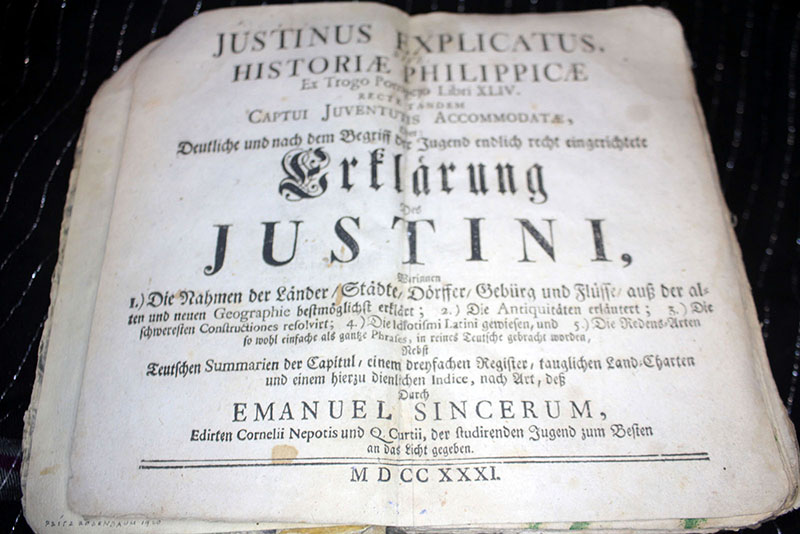 JUSTINUS EXPLICATUS,
HISTORIÆ PHILIPPICÆ
Ex Trogo Pompejo Libri XLIV.
RECTE TANDEM
CAPTUI JUVENTUTIS ACCOMMODATÆ,
Deutliche und nach dem Begriff der Jugend endlich recht eingerichtete
Erklärung
Des
JUSTINI,
Worinnen
1.) Die Nahmen der Länder/ Städte/ Dörffer/ Gebürg und Flüsse/ auß der al-
ten und neuen Geographie bestmöglichst erkläret; 2.) Die Antiquitäten erläutert; 3.) Die
schweresten Constructiones resolvirt; 4.) Die Idiotismi Latini gewiesen, und 5.) Die Redens-Arten
so wohl einfache als gantze Phrases, in reines Teutsche gebracht worden,
Nebst
Teutschen Summarien der Capitul/ einem dreyfachen Register/ tauglichen Land-Charten
und einem hierzu dienlichen Indice, nach Art, deß
Durch
EMANUEL SINCERUM,
Edirten Cornelii Nepotis und Q. Curtii, der studirenden Jugend zum Besten
an das Licht gegeben.
MDCCXXXI.